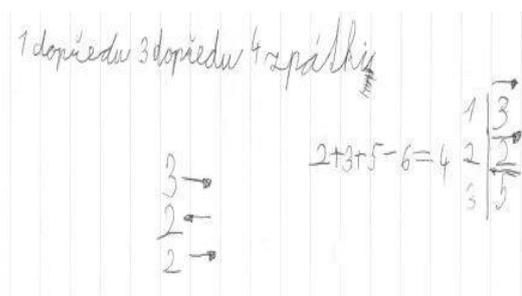 1 dopředu 3 dopředu 4 zpátki
2+3+5-6=4
3→
2←
2→
1 | 3→
2 | 2→
3 | 5←